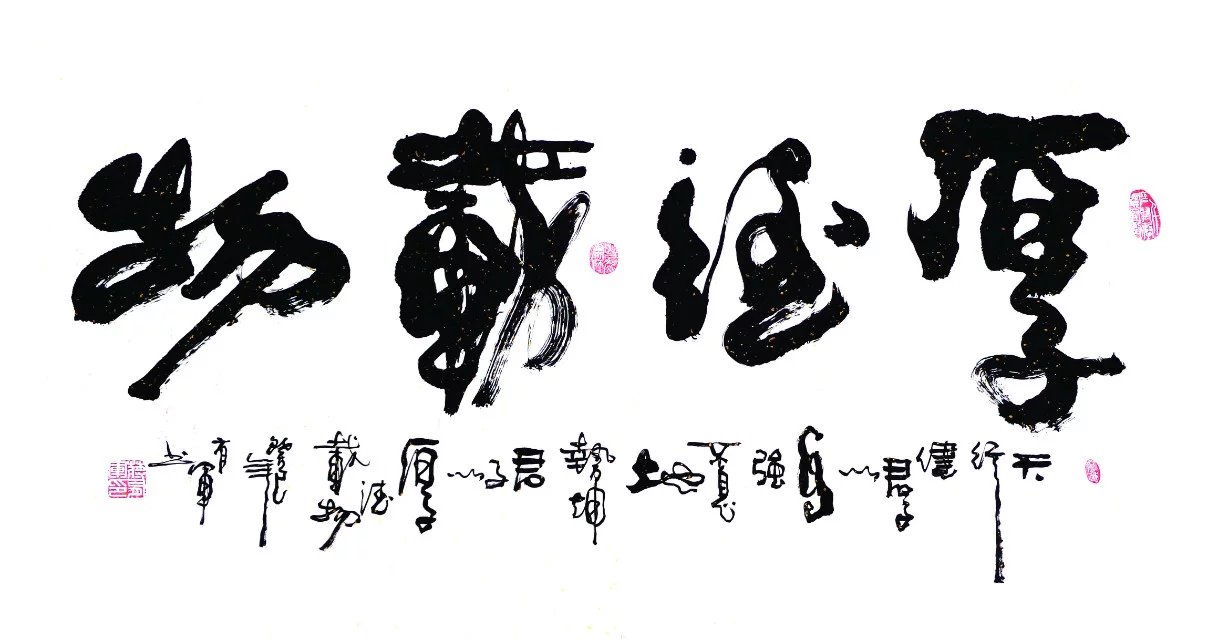 厚德載物
天行健君子以自強不息地勢坤君子以厚德載物
有軍书